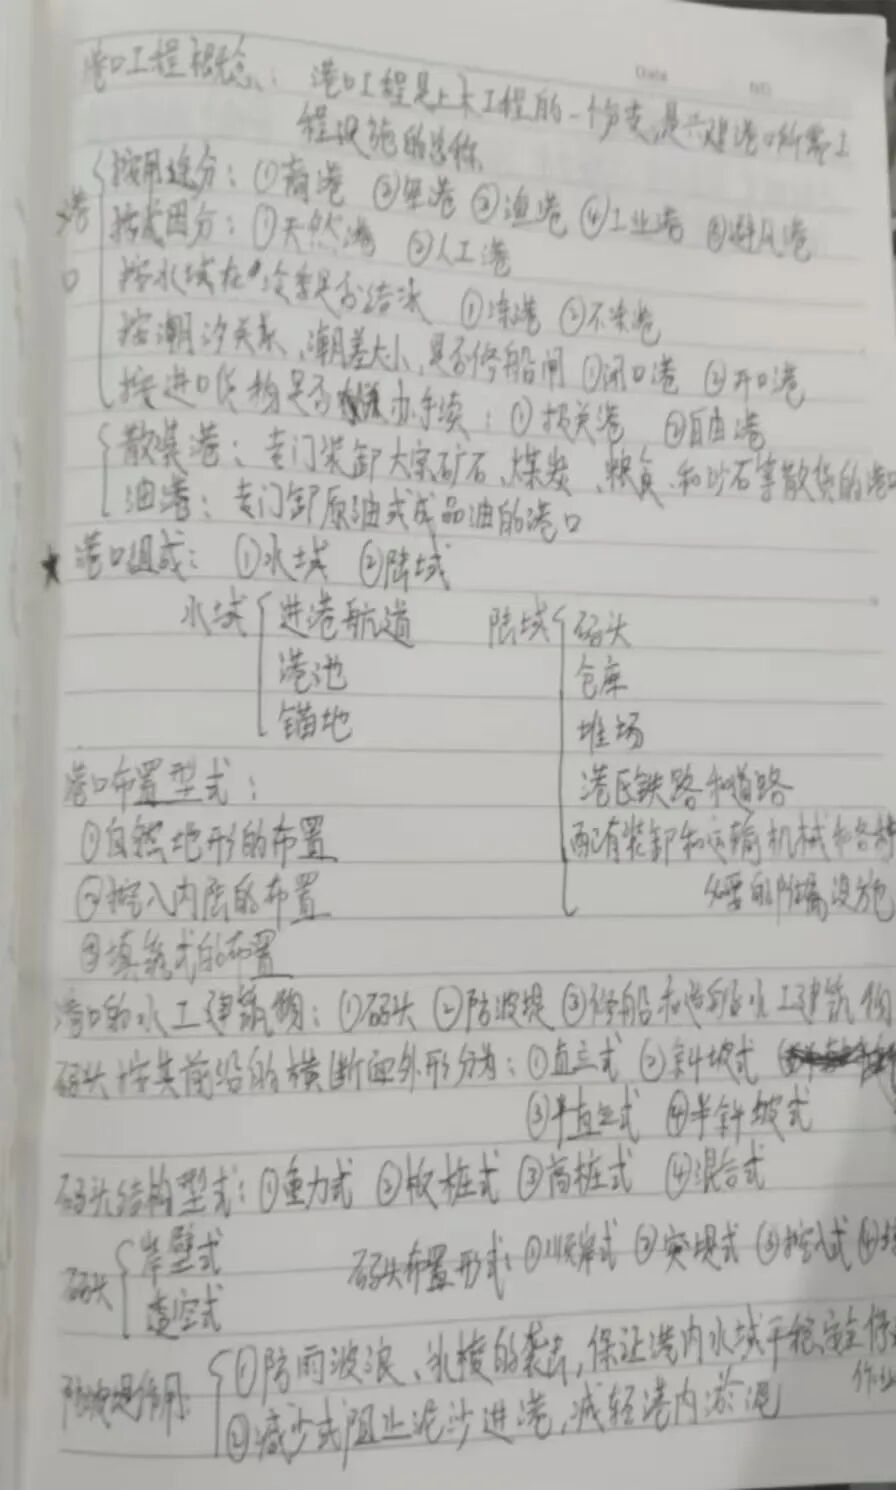 港口工程概念: 港口工程是土木工程的一个分支,是兴建港口所需工
程设施的总称
港口
按用途分:①商港 ②军港 ③渔港 ④工业港 ⑤避风港
按成因分:①天然港 ②人工港
按水域在冷季是否结冰 ①冻港 ②不冻港
按潮汐关系、潮差大小,是否修船闸 ①闭口港 ②开口港
按进口货物是否 办手续:①报关港 ②自由港
散集港:专门装卸大宗矿石、煤炭、粮食、和沙石等散货的港口
油港:专门卸原油或成品油的港口
★港口组成: ①水域 ②陆域
水域 进港航道 陆域 码头
港池 仓库
锚地 堆场
港口布置型式: 港区铁路和道路
①自然地形的布置 配有装卸和运输机械和各种
②挖入内陆的布置 必要的附属设施
③填筑式的布置
港口的水工建筑物:①码头 ②防波堤 ③修船和造船水工建筑物
码头按其前沿的横断面外形分为:①直立式 ②斜坡式
③半直立式 ④半斜坡式
码头结构型式:①重力式 ②板桩式 ③高桩式 ④混合式
码头 岸壁式 码头布置形式:①顺岸式 ②突堤式 ③挖入式 ④
透空式
防波堤作用: ①防雨波浪、冰棱的袭击,保证港内水域平稳,安全停
作业
②减少或阻止泥沙进港,减轻港内淤泥